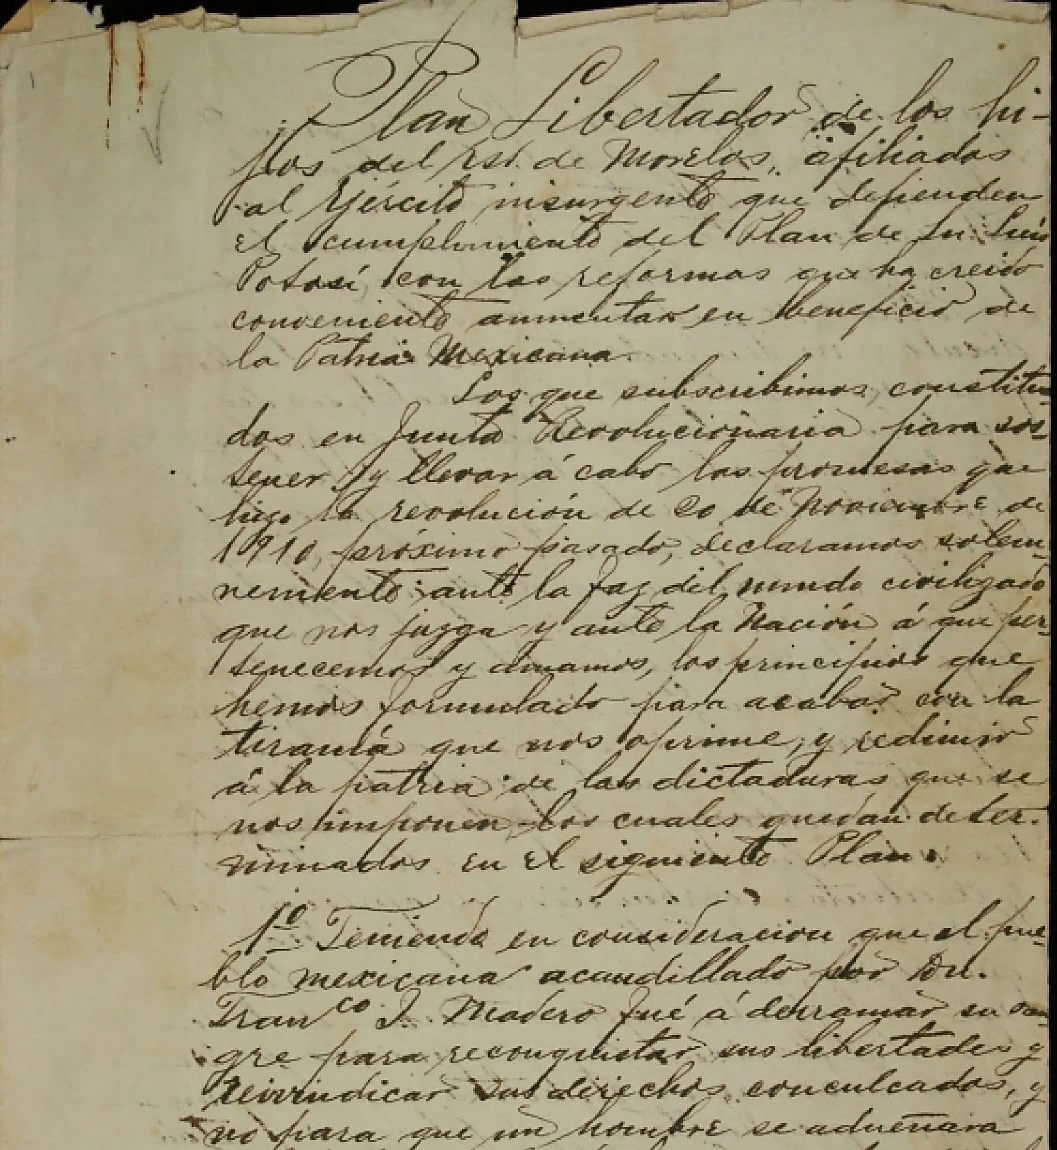 Plan Libertador de los hi-
jos del Est. de Morelos, afiliados
al Ejército insurgente que defienden
el cumplimiento del Plan de Sn. Luis
Potosí con las reformas que ha creido
conveniente aumentar en beneficio de
la Patria Mexicana.
Los que subscribimos, constitui
dos en Junta Revolucionaria para sos-
tener y llevar á cabo las promesas que
hizo la revolución de 20 de Noviembre de
1910, próximo pasado, declaramos solem-
nemente ante la faz del mundo civilizado
que nos juzga y ante la Nación á que per-
tenecemos y amamos, los principios que
hemos formulado para acabar con la
tiranía que nos oprime, y redimir
á la patria de las dictaduras que se
nos imponen los cuales quedan deter-
minados en el siguiente Plan.
1º Teniendo en consideracion que el pue-
blo mexicano acaudillado por Dn.
Franco I. Madero fué á derramar su san-
gre para reconquistar sus libertades y
reivindicar sus derechos conculcados, y
no para que un hombre se adueñara